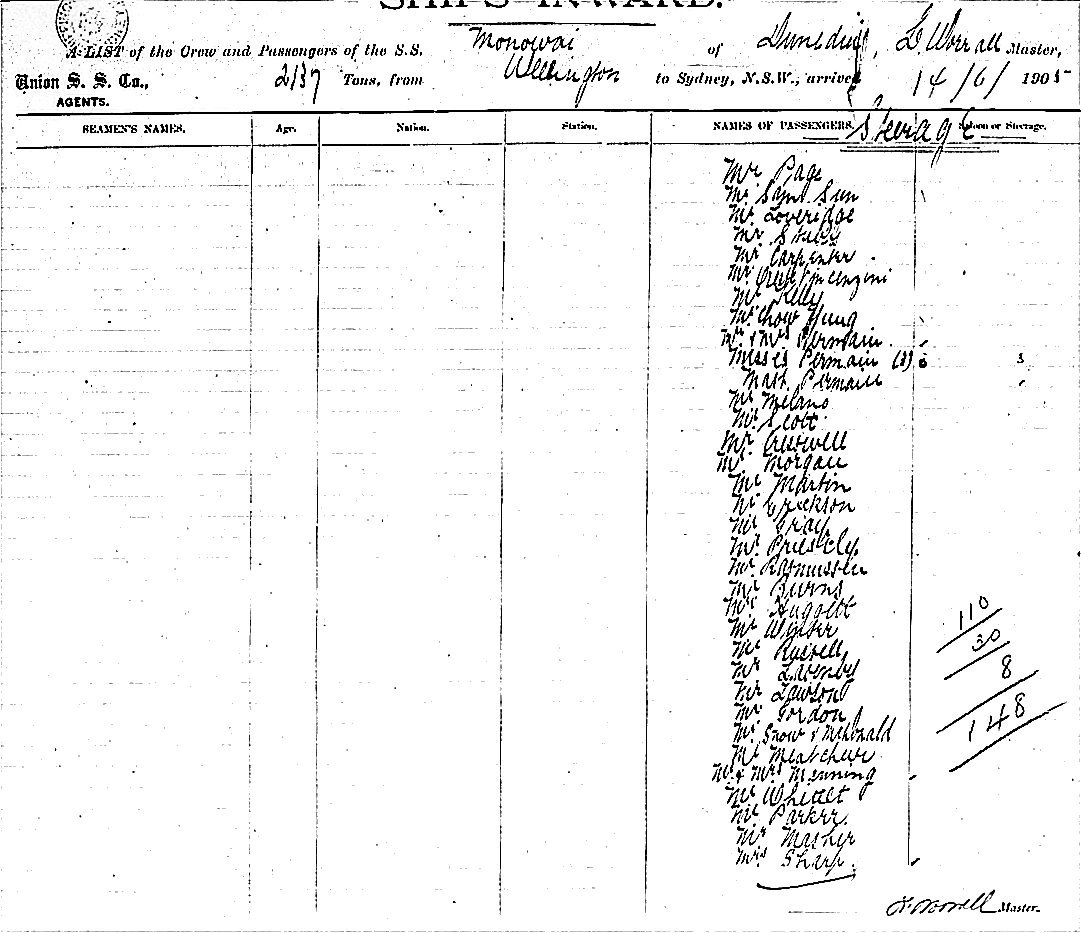 SHIPS INWARD.
A LIST of the Crew and Passengers of the S.S. Monowai of Dunedin, Worrall Master,
Union S. S. Co., AGENTS. 2137 Tons, from Wellington to Sydney, N.S.W., arrived 14/6/ 1905
SEAMEN'S NAMES. Age. Nation. Station. NAMES OF PASSENGERS. Saloon or Steerage.
Steerage
Mr Page
Mr Sun
Mr Loveridge
Mr
Mr Carpenter
Mr
Mr Kelly
Mr Chow Yung
Mr & Mrs Permain
Misses Permain (3) 3
Mast. Permain
Mr Milano
Mr Scott
Mr Cresswell
Mr Morgan
Mr Martin
Mr Erickson
Mr Gray
Mr Priestly
Mr Rasmussen
Mr Burns
Mr Huggett
110
Mr
30
Mr Russell
8
Mr
Mr Lawson
Mr Gordon
148
Mr Snow & McDonald
Mr
Mr & Mrs Menning
Mr Whittet
Mr Parker.
Mr Masher
Mrs Sharp.
Worrall Master.